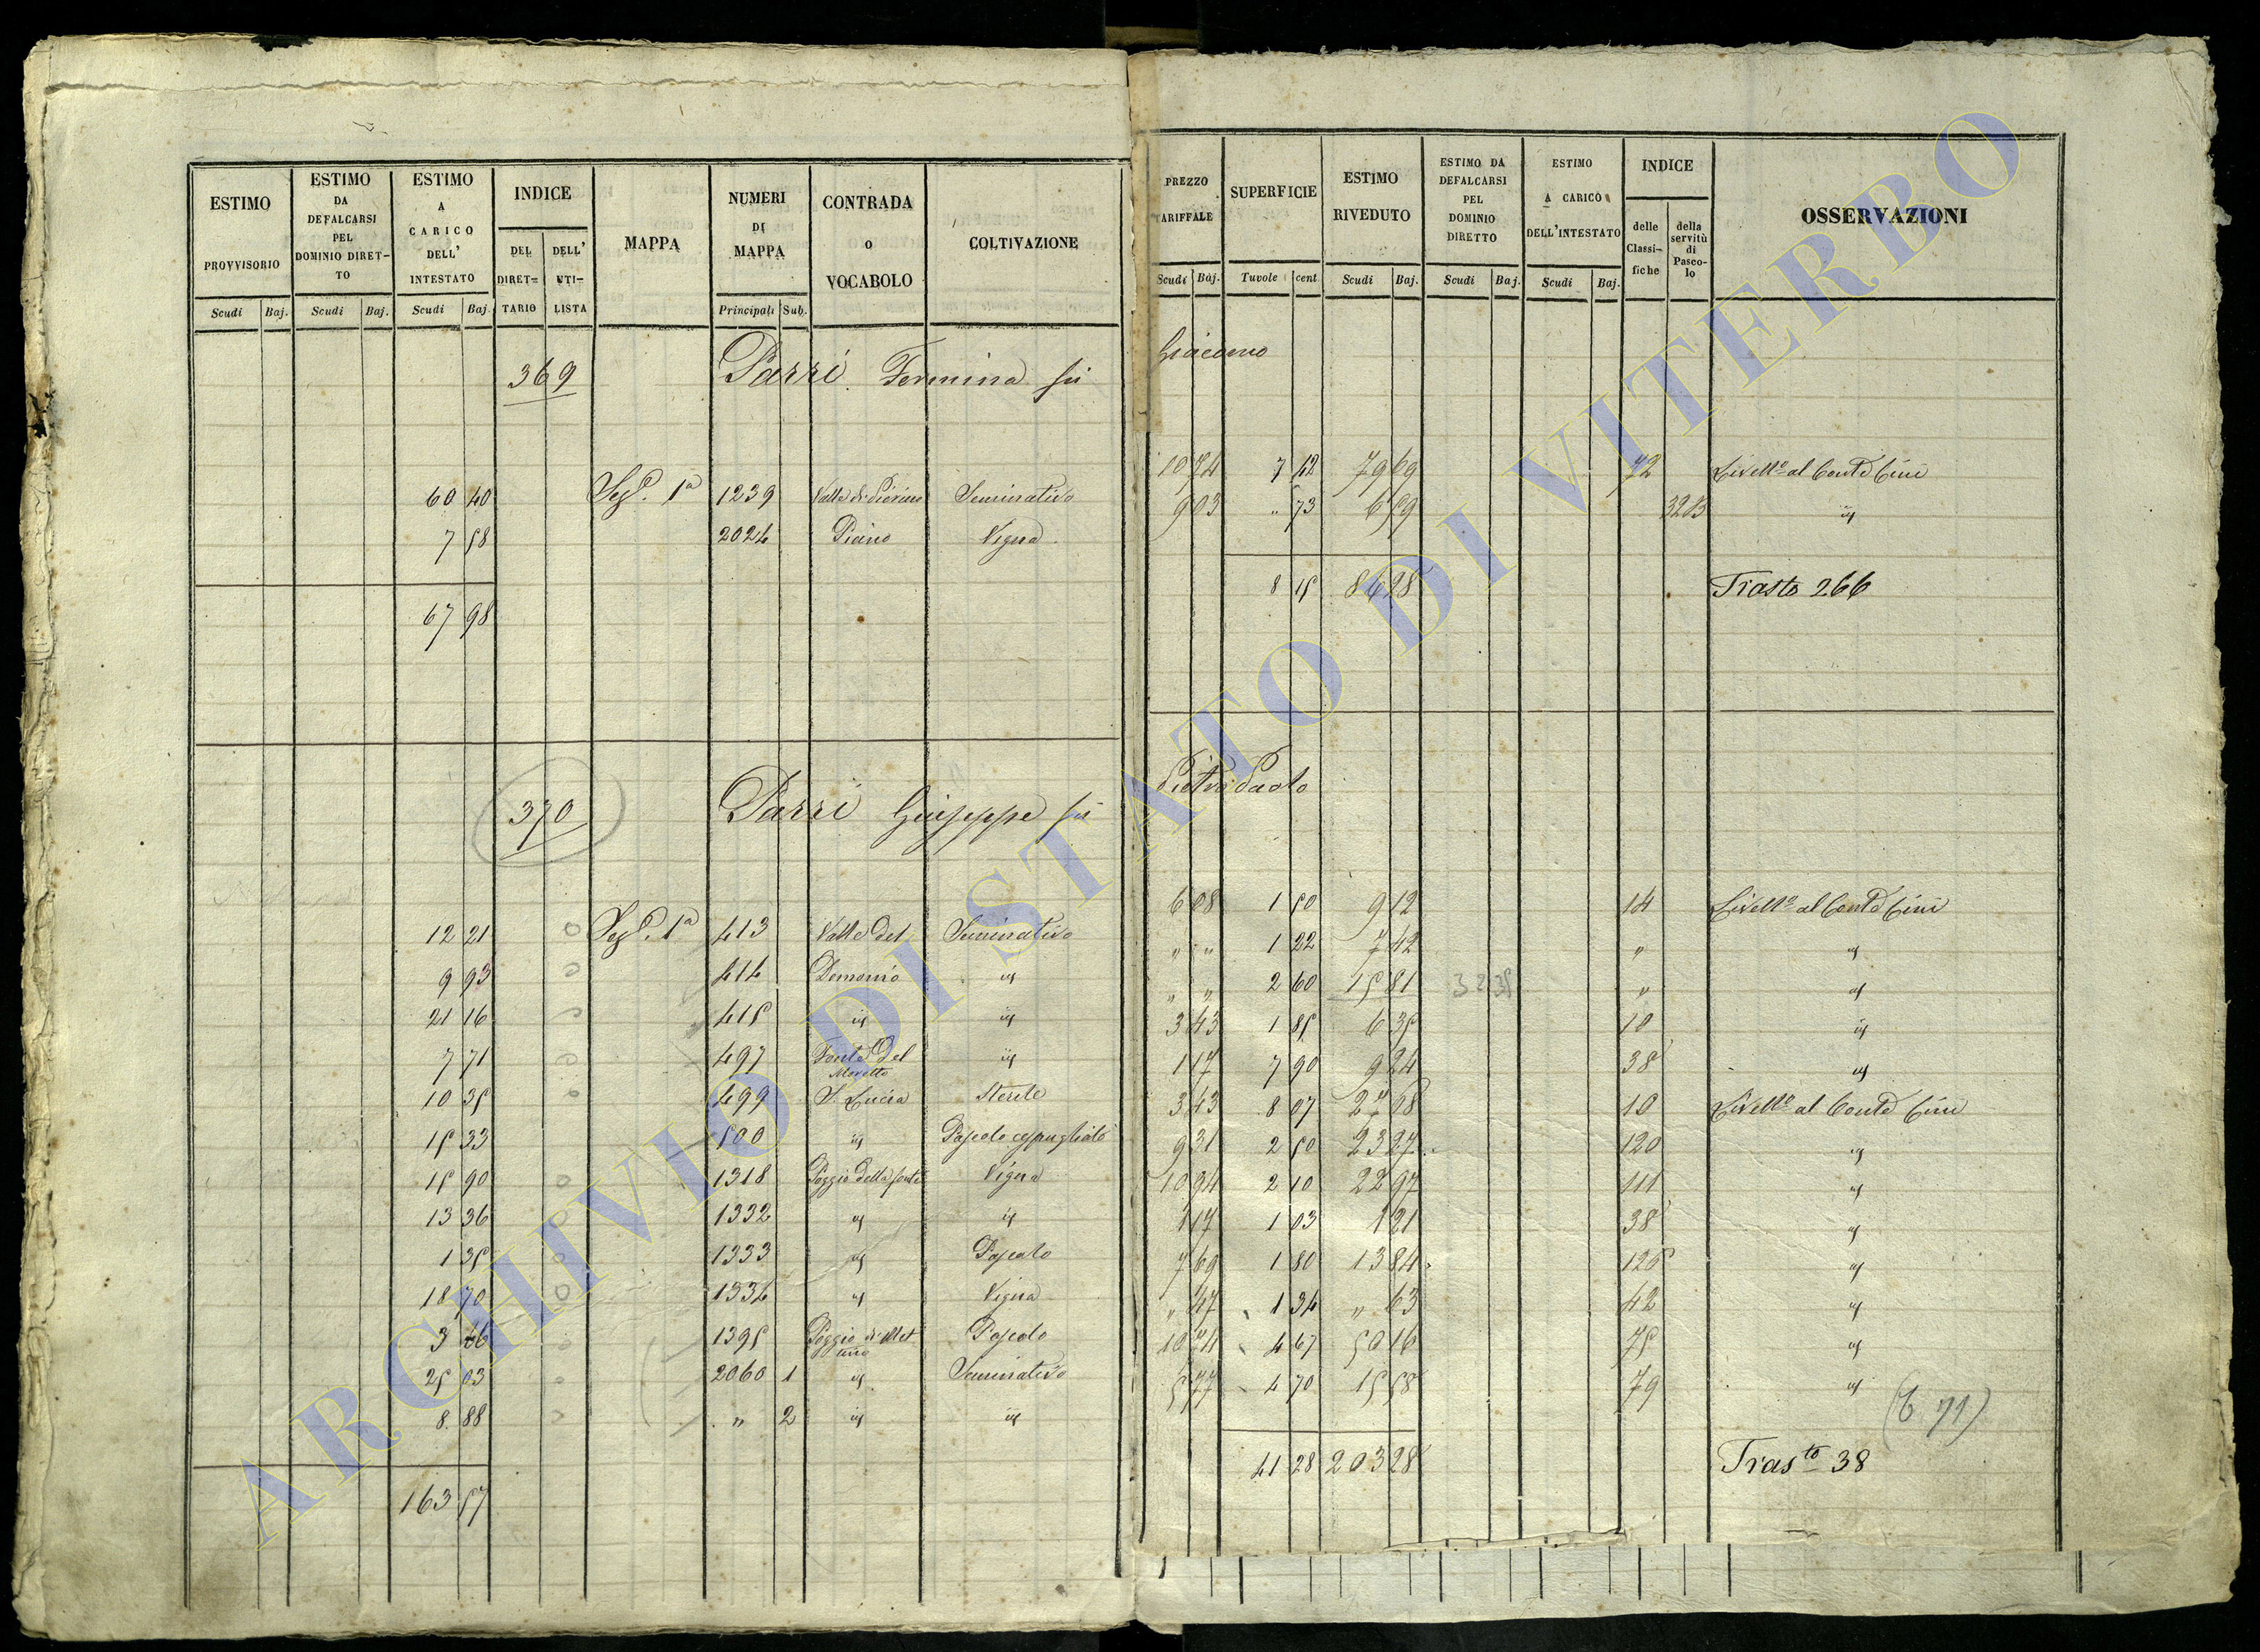 ESTIMO PROVVISORIO Scudi Baj.
ESTIMO DA DEFALCARSI PEL DOMINIO DIRET-TO Scudi Baj.
ESTIMO A CARICO DELL' INTESTATO Scudi Baj.
INDICE DEL DIRET-TARIO DELL' UTI-LISTA
MAPPA
NUMERI DI MAPPA Principali Sub.
CONTRADA o VOCABOLO
COLTIVAZIONE
PREZZO TARIFFALE Scudi Baj.
SUPERFICIE Tavole cent
ESTIMO RIVEDUTO Scudi Baj.
ESTIMO DA DEFALCARSI PEL DOMINIO DIRETTO Scudi Baj.
ESTIMO A CARICO DELL'INTESTATO Scudi Baj.
INDICE delle Classi-fiche della servitù di Pasco-lo
OSSERVAZIONI
369 Parri Fermina fu Giacomo
60 40 Sez.e 1a 1239 Seminativo
7 58 2024 Piano Vigna
67 98
10 74 7 42 79 69 72 Livello al Conte Cini
9 03 " 73 6 59 3283 id
8 15 86 28 Trasto 266
370 Parri Giuseppe fu Pietro Paolo
12 21 Sez.e 1a 413 Valle del Seminativo
9 93 414 Demonio id
21 16 415 id id
7 71 497 Fonte del Moretto id
10 35 499 S. Lucia Sterile
15 33 500 id Pascolo cespugliato
15 90 1318 Poggio della fonte Vigna
13 36 1332 id id
1 35 1333 id Pascolo
18 70 1334 id Vigna
3 46 1395 Poggio Pascolo
25 03 2060 1 id Seminativo
8 88 " 2 id id
163 57
6 08 1 50 9 12 14 Livello al Conte Cini
" " 1 22 7 42 " id
" " 2 60 15 81 32 35 " id
3 43 1 85 6 35 10 id
1 17 7 90 9 24 38 id
3 43 8 07 27 68 10 Livello al Conte Cini
9 31 2 50 23 27 120 id
10 94 2 10 22 97 111 id
1 17 1 03 1 21 38 id
7 69 1 80 13 84 126 id
" 47 1 34 " 63 42 id
10 74 4 67 50 16 75 id
5 77 4 70 15 58 79 id
(6 71)
41 28 203 28 Trasto 38
ARCHIVIO DI STATO DI VITERBO